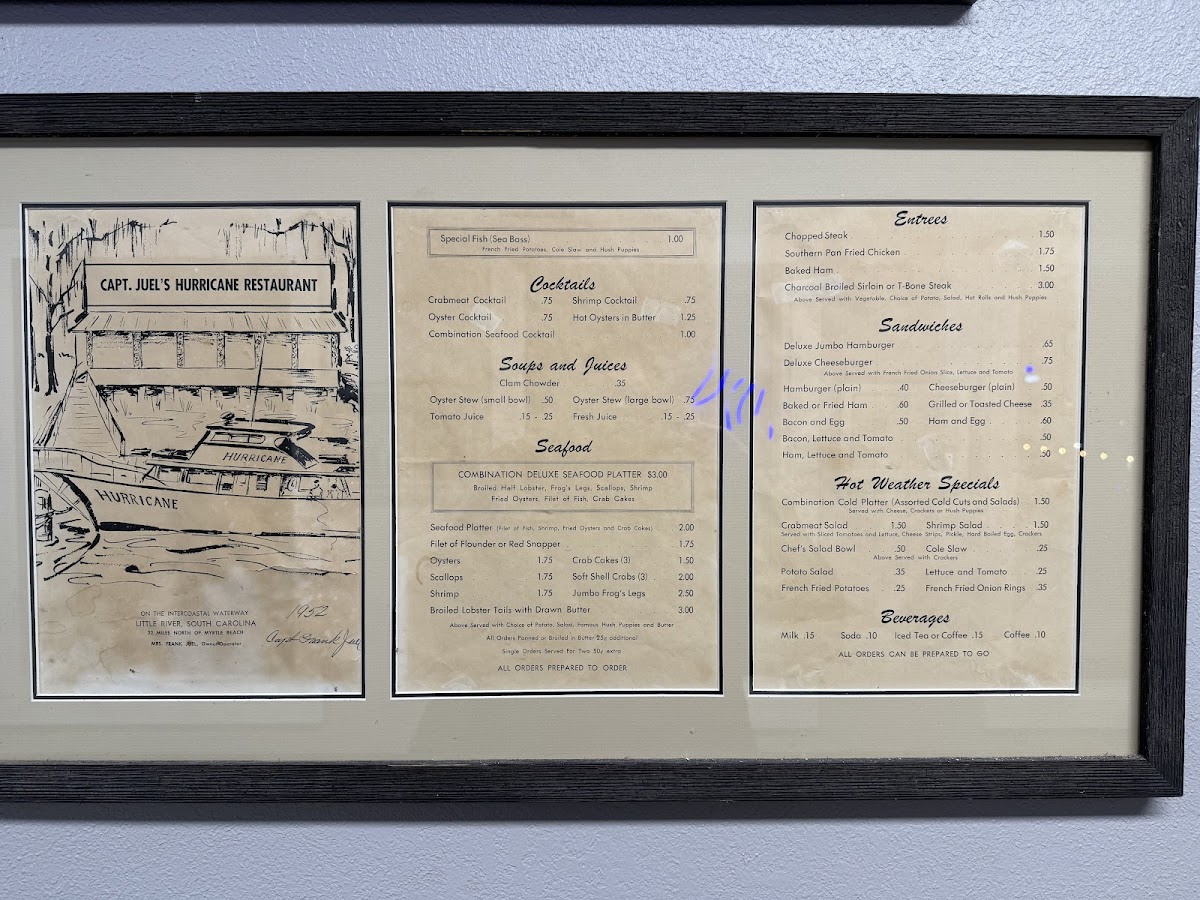 CAPT. JUEL'S HURRICANE RESTAURANT
HURRICANE
HURRICANE
ON THE INTERCOASTAL WATERWAY
LITTLE RIVER, SOUTH CAROLINA
22 MILES NORTH OF MYRTLE BEACH
MRS. FRANK JUEL, Owner/Operator
1952
Capt Frank Juel
Special Fish (Sea Bass) 1.00
French Fried Potatoes, Cole Slaw and Hush Puppies
Cocktails
Crabmeat Cocktail .75 Shrimp Cocktail .75
Oyster Cocktail .75 Hot Oysters in Butter 1.25
Combination Seafood Cocktail 1.00
Soups and Juices
Clam Chowder .35
Oyster Stew (small bowl) .50 Oyster Stew (large bowl) .75
Tomato Juice .15 - .25 Fresh Juice .15 - .25
Seafood
COMBINATION DELUXE SEAFOOD PLATTER $3.00
Broiled Half Lobster, Frog's Legs, Scallops, Shrimp
Fried Oysters, Filet of Fish, Crab Cakes
Seafood Platter (Filet of Fish, Shrimp, Fried Oysters and Crab Cakes) 2.00
Filet of Flounder or Red Snapper 1.75
Oysters 1.75 Crab Cakes (3) 1.50
Scallops 1.75 Soft Shell Crabs (3) 2.00
Shrimp 1.75 Jumbo Frog's Legs 2.50
Broiled Lobster Tails with Drawn Butter 3.00
Above Served with Choice of Potato, Salad, Famous Hush Puppies and Butter
All Orders Panned or Broiled in Butter 25¢ additional
Single Orders Served For Two 50¢ extra
ALL ORDERS PREPARED TO ORDER
Entrees
Chopped Steak 1.50
Southern Pan Fried Chicken 1.75
Baked Ham 1.50
Charcoal Broiled Sirloin or T-Bone Steak 3.00
Above Served with Vegetable, Choice of Potato, Salad, Hot Rolls and Hush Puppies
Sandwiches
Deluxe Jumbo Hamburger .65
Deluxe Cheeseburger .75
Above Served with French Fried Onion Slice, Lettuce and Tomato
Hamburger (plain) .40 Cheeseburger (plain) .50
Baked or Fried Ham .60 Grilled or Toasted Cheese .35
Bacon and Egg .50 Ham and Egg .60
Bacon, Lettuce and Tomato .50
Ham, Lettuce and Tomato .50
Hot Weather Specials
Combination Cold Platter (Assorted Cold Cuts and Salads) 1.50
Served with Cheese, Crackers or Hush Puppies
Crabmeat Salad 1.50 Shrimp Salad 1.50
Served with Sliced Tomatoes and Lettuce, Cheese Strips, Pickle, Hard Boiled Egg, Crackers
Chef's Salad Bowl .50 Cole Slaw .25
Above Served with Crackers
Potato Salad .35 Lettuce and Tomato .25
French Fried Potatoes .25 French Fried Onion Rings .35
Beverages
Milk .15 Soda .10 Iced Tea or Coffee .15 Coffee .10
ALL ORDERS CAN BE PREPARED TO GO